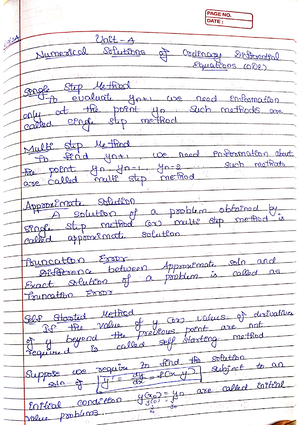 PAGE NO.
DATE:
Unit - 4
Numerical Solutions of Ordinary Differential
Equations (ODE)
Single Step Method
To evaluate yn+1, we need information
only at the point yn. Such methods are
called single step method
Multi step Method
To find yn+1, we need information about
the point yn, yn-1, yn-2 such methods
are called multi step method
Approximate Solution
A solution of a problem obtained by
single step method (or) multi step method is
called approximate solution
Truncation Error
Difference between Approximate soln and
Exact solution of a problem is called as
Truncation Error
Self Started Method
If the value of y (or) values of derivative
of y beyond the previous point are not
required is called self starting method
Suppose we require to find the solution
soln of y' = dy/dx = f(x, y) subject to an
initial condition y(x0) = y0 are called initial
value problems.